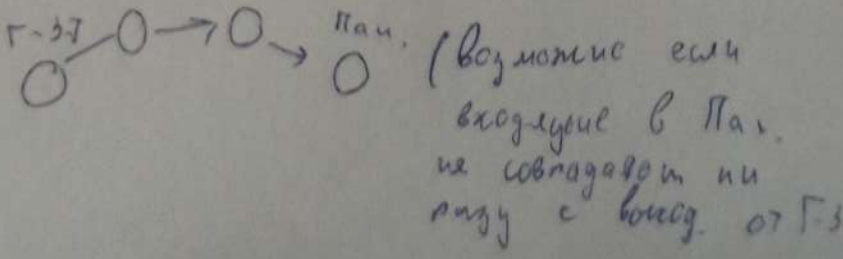 Г-3-I
Пац.
(возможно если
входящие в Пац.
не совпадают ни
разу с выход. от Г-3